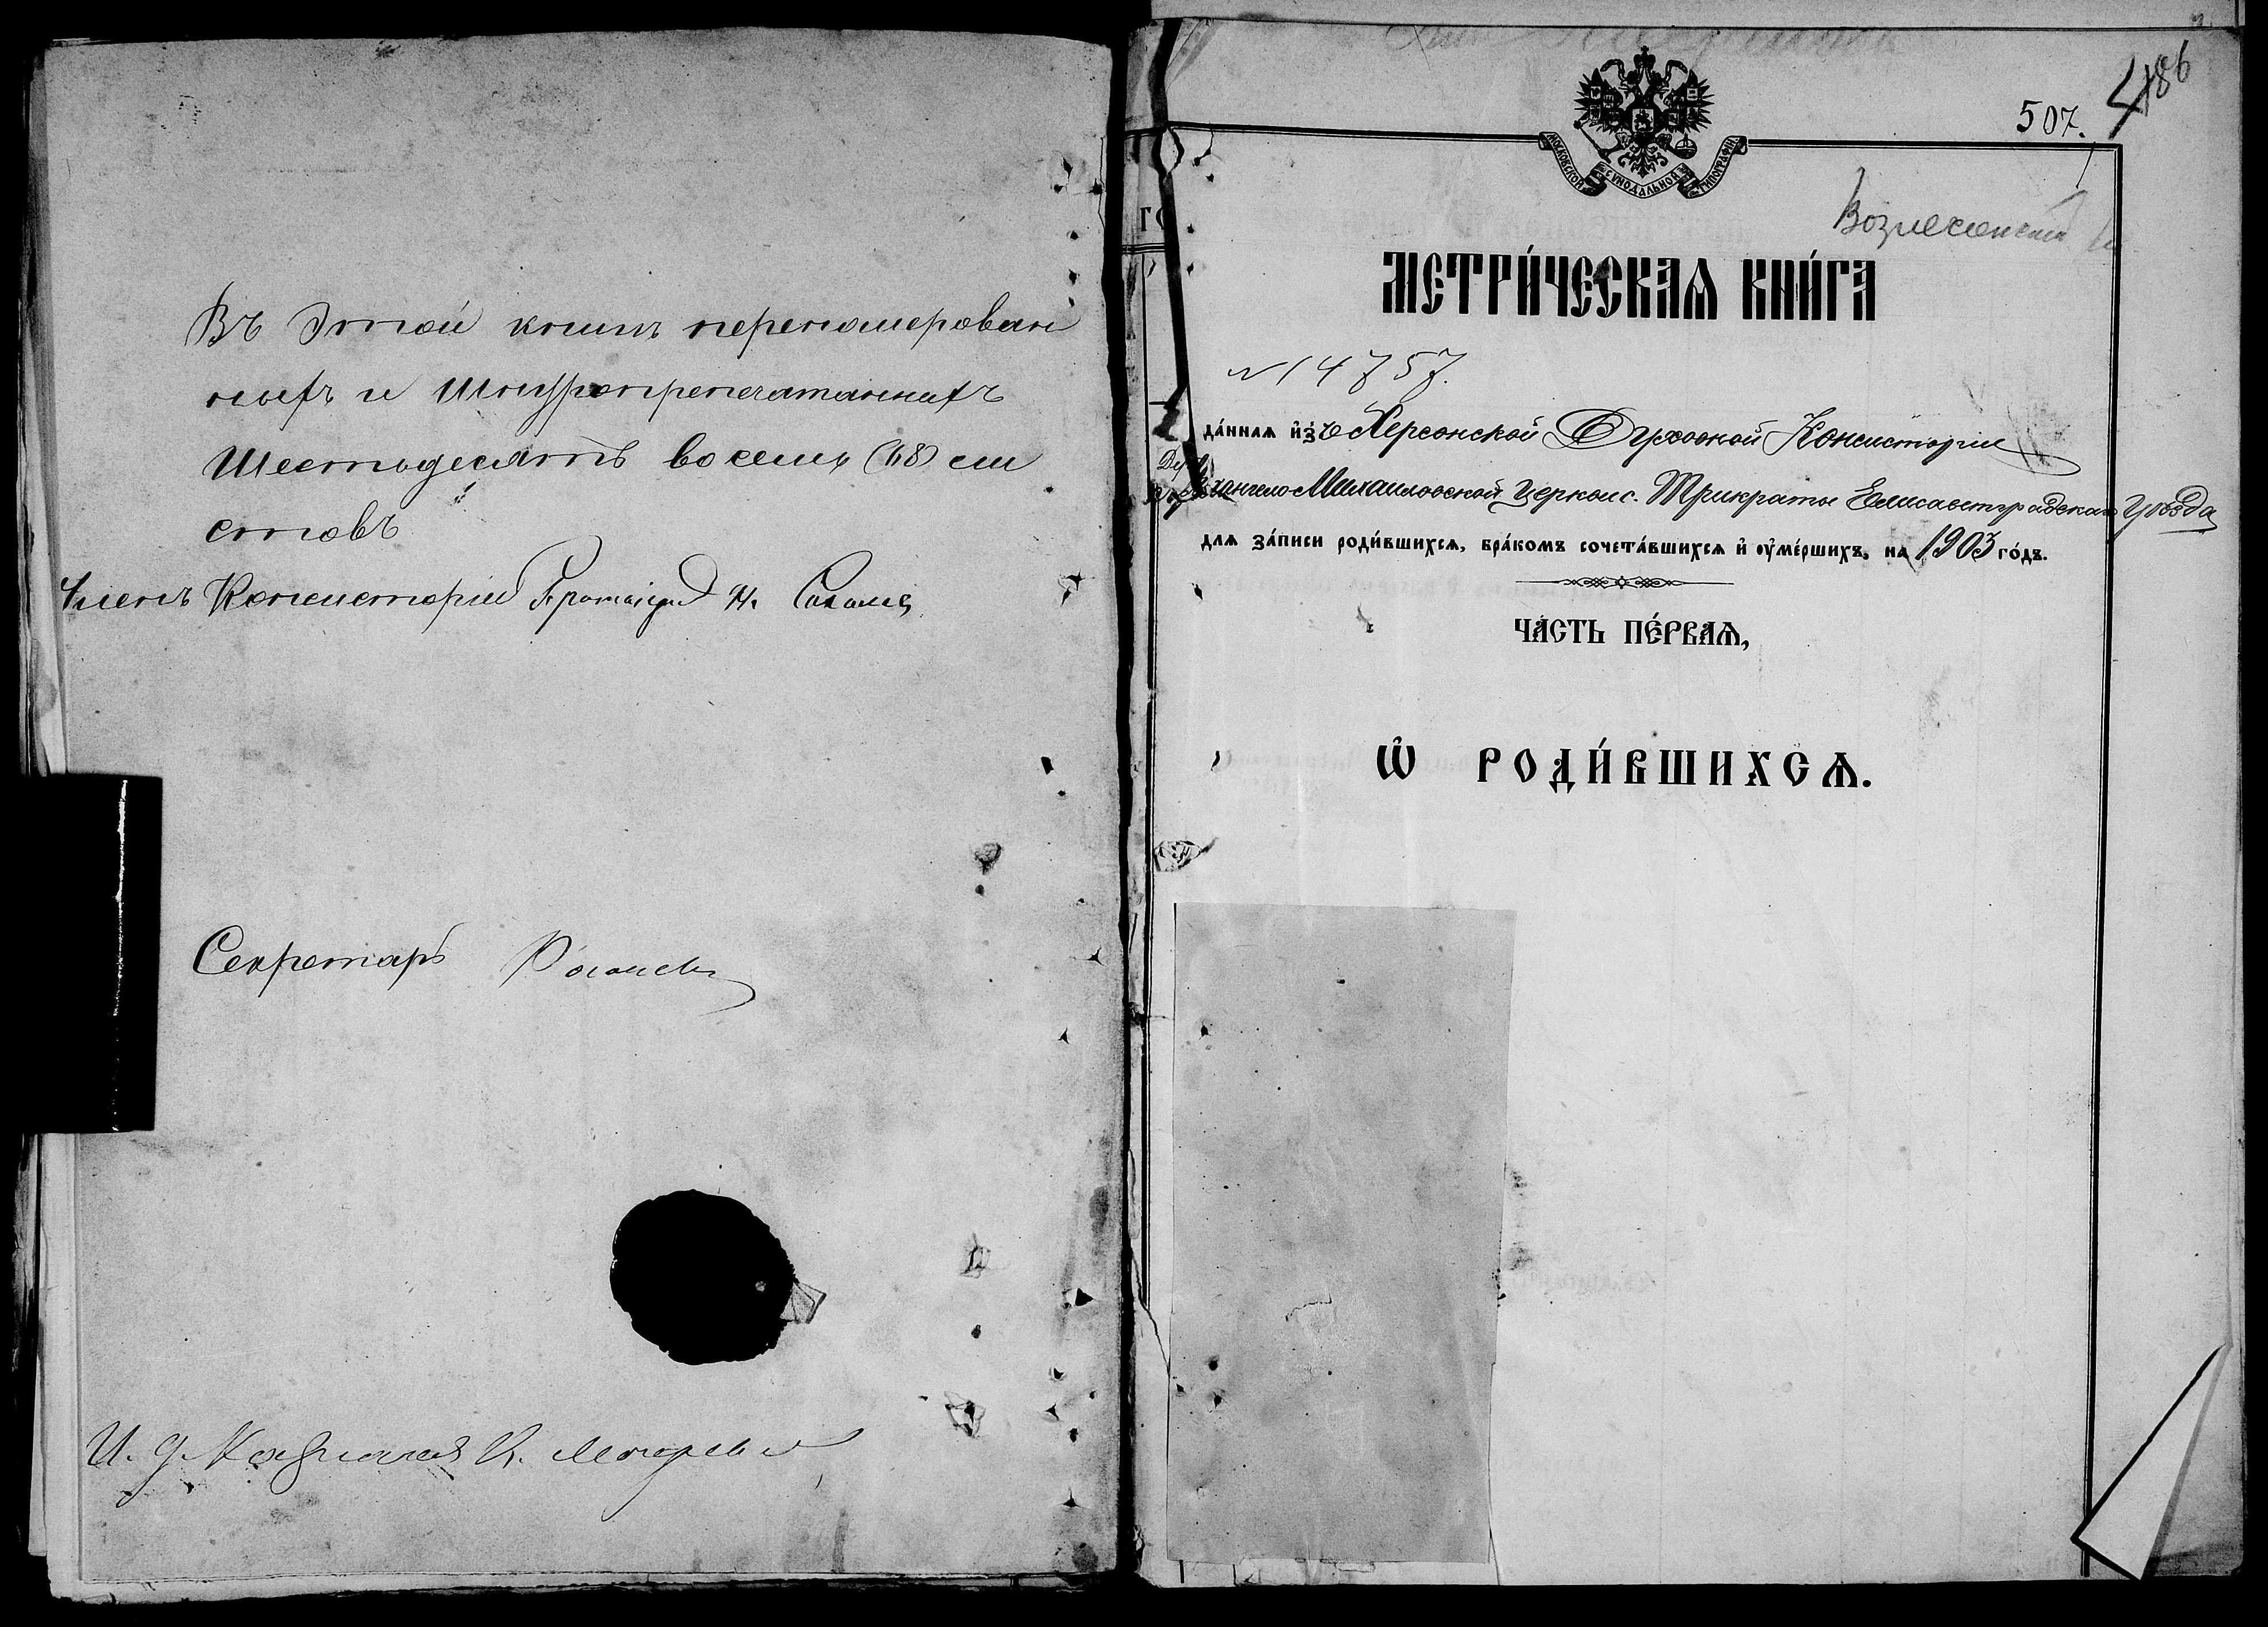 Въ этой книгѣ перенумерован
ныхъ и шнуропрепечатанныхъ
Шестьдесятъ восемь (68) ли
стовъ
Членъ Консисторіи Протоіерей
Секретарь
И. д.
486
507.
МОСКОВСКОЙ СѴНОДАЛЬНОЙ ТИПОГРАФІИ
МЕТРИ́ЧЕСКАѦ КНИ́ГА
№ 14757.
да́ннаѧ и҆зъ Херсонской Духовной Консисторіи
Архангело-Михаиловской церкви с. Трикраты Елисаветградскаго уѣзда
длѧ за́писи роди́вшихсѧ, бра́комъ сочета́вшихсѧ и҆ ᲂу҆ме́ршихъ, на 1903 го́дъ.
ЧА́СТЬ ПЕ́РВАѦ,
Ѽ РОДИ́ВШИХСѦ.